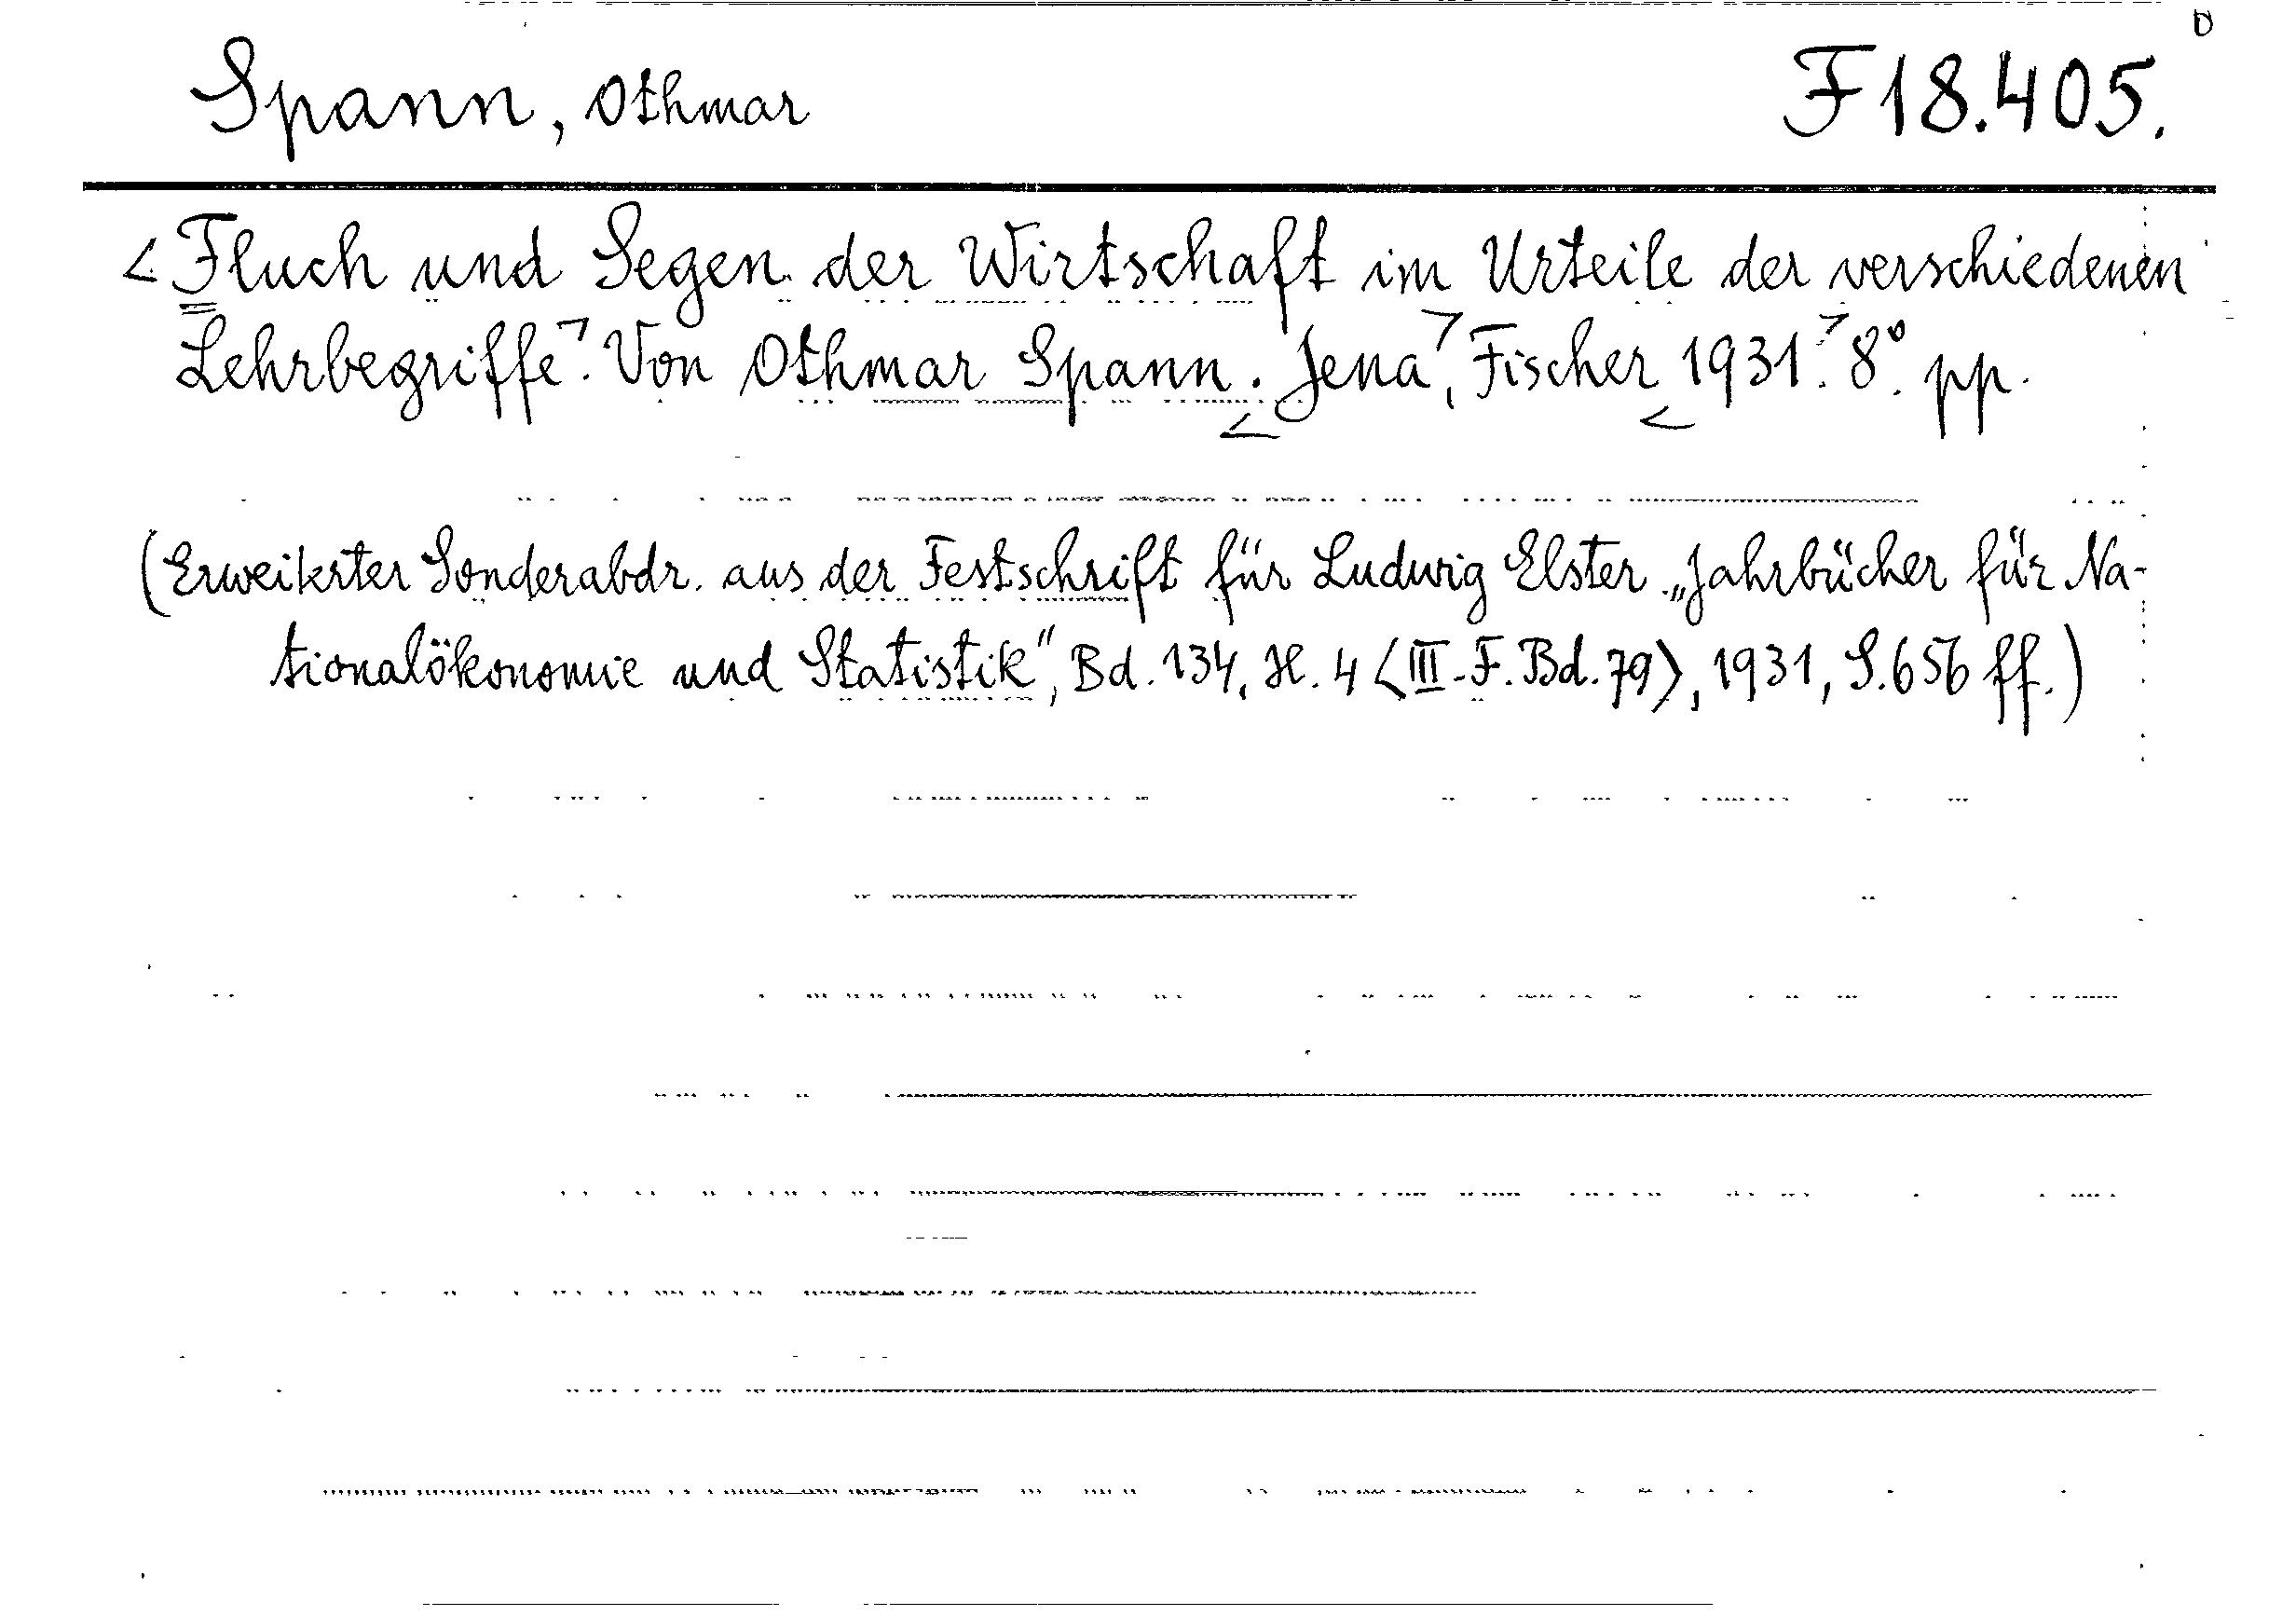 D
Spann, Othmar F 18.405.
<Fluch und Segen der Wirtschaft im Urteile der verschiedenen
Lehrbegriffe>. Von Othmar Spann. <Jena>, Fischer <1931>. 8°. pp.
(Erweiterter Sonderabdr. aus der Festschrift für Ludwig Elster „Jahrbücher für Na-
tionalökonomie und Statistik“, Bd. 134, H. 4 <III. F. Bd. 79>, 1931, S. 656 ff.)